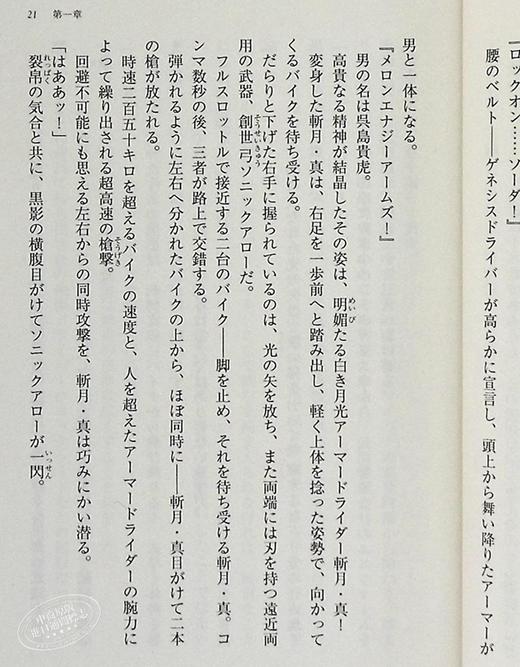 『ロックオン……ソーダ！』
腰のベルト――ゲネシスドライバーが高らかに宣言し、頭上から舞い降りたアーマーが
21 第一章
男と一体になる。
『メロンエナジーアームズ！』
男の名は呉島貴虎。
高貴なる精神が結晶したその姿は、明媚たる白き月光アーマードライダー斬月・真！
変身した斬月・真は、右足を一歩前へと踏み出し、軽く上体を捻った姿勢で、向かって
くるバイクを待ち受ける。
だらりと下げた右手に握られているのは、光の矢を放ち、また両端には刃を持つ遠近両
用の武器、創世弓ソニックアローだ。
フルスロットルで接近する二台のバイク――脚を止め、それを待ち受ける斬月・真。コ
ンマ数秒の後、三者が路上で交錯する。
弾かれるように左右へ分かれたバイクの上から、ほぼ同時に――斬月・真目がけて二本
の槍が放たれる。
時速二百五十キロを超えるバイクの速度と、人を超えたアーマードライダーの腕力に
よって繰り出される超高速の槍撃。
回避不可能にも思える左右からの同時攻撃を、斬月・真は巧みにかい潜る。
「はああッ！」
裂帛の気合と共に、黒影の横腹目がけてソニックアローが一閃。